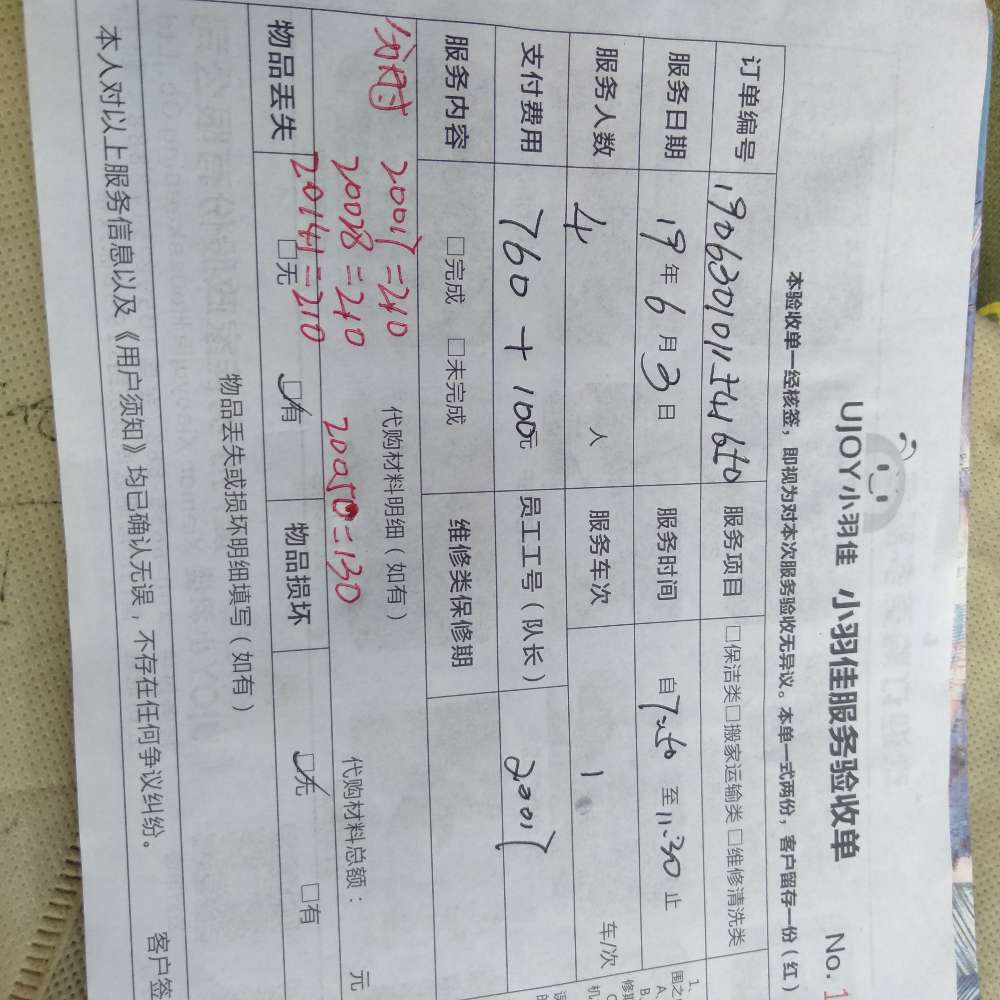 UJOY小羽佳 小羽佳服务验收单 No. 1
本验收单一经核签，即视为对本次服务验收无异议。本单一式两份，客户留存一份（红）
订单编号 服务项目 □保洁类□搬家运输类□维修清洗类
服务日期 19年6月3日 服务时间 自7:50至11:30止
服务人数 4 人 服务车次 1 车/次
支付费用 760+100元 员工工号（队长） 2001
服务内容 □完成 □未完成 维修类保修期
代购材料明细（如有） 代购材料总额： 元
=210
20078=210
20141=210
=130
物品丢失 □无 □有 物品损坏 □无 □有
物品丢失或损坏明细填写（如有）
本人对以上服务信息以及《用户须知》均已确认无误，不存在任何争议纠纷。 客户签